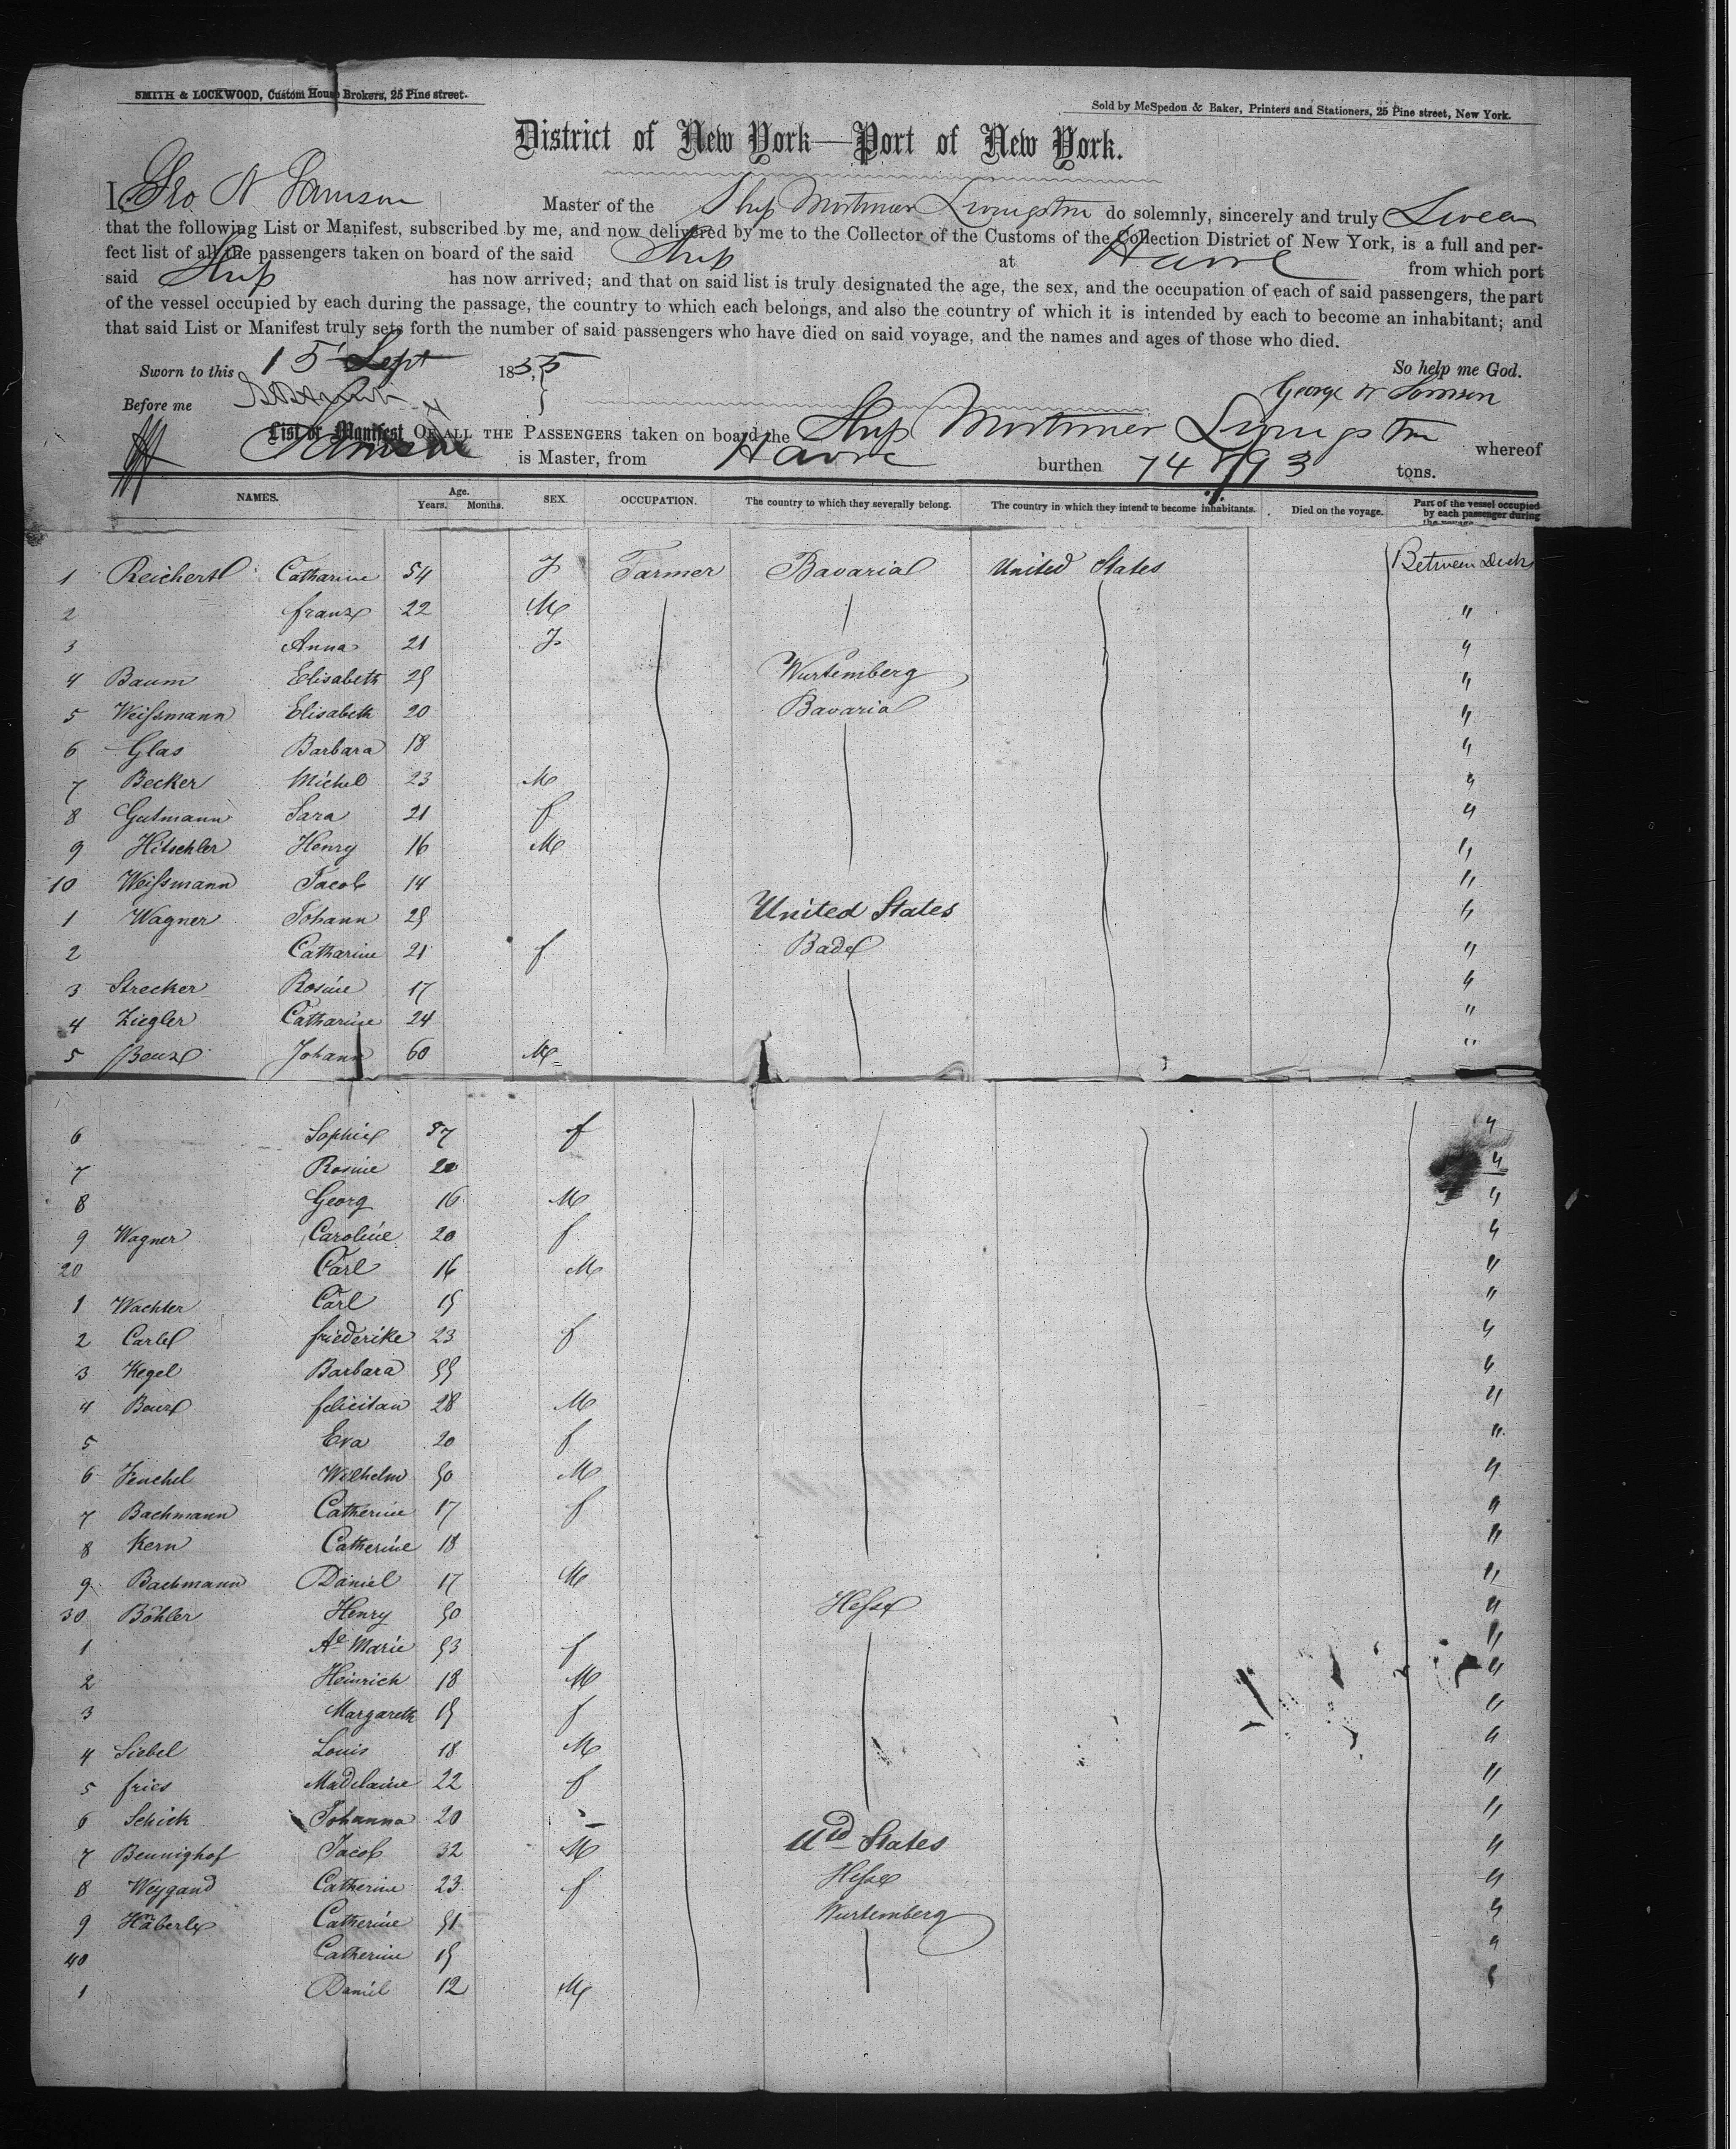 SMITH & LOCKWOOD, Custom House Brokers, 25 Pine street.
Sold by McSpedon & Baker, Printers and Stationers, 25 Pine street, New York.
District of New York—Port of New York.
I, Geo W Master of the Ship Mortimer Livingston do solemnly, sincerely and truly Swear
that the following List or Manifest, subscribed by me, and now delivered by me to the Collector of the Customs of the Collection District of New York, is a full and per-
fect list of all the passengers taken on board of the said Ship at Havre from which port
said Ship has now arrived; and that on said list is truly designated the age, the sex, and the occupation of each of said passengers, the part
of the vessel occupied by each during the passage, the country to which each belongs, and also the country of which it is intended by each to become an inhabitant; and
that said List or Manifest truly sets forth the number of said passengers who have died on said voyage, and the names and ages of those who died.
Sworn to this 15 Sept 1855 So help me God.
Before me George W
List or Manifest OF ALL THE PASSENGERS taken on board the Ship Mortimer Livingston whereof
is Master, from Havre burthen tons.
NAMES. Age. Years. Months. SEX. OCCUPATION. The country to which they severally belong. The country in which they intend to become inhabitants. Died on the voyage. Part of the vessel occupied by each passenger during the voyage
1 Reichert Catharine 54 F Farmer Bavaria United States Between Deck
2 franz 22 M "
3 Anna 21 F "
4 Baum Elisabeth 25 Wurtemberg "
5 Weissmann Elisabeth 20 Bavaria "
6 Glas Barbara 18 "
7 Becker Michel 23 M "
8 Gutmann Sara 21 f "
9 Hitschler Henry 16 M "
10 Weissmann Jacob 14 "
1 Wagner Johann 25 United States "
2 Catharine 21 f Bade "
3 Strecker Rosine 17 "
4 Ziegler Catharine 24 "
5 Benz Johann 60 M "
6 Sophie 57 f "
7 Rosine "
8 Georg 16 M "
9 Wagner Caroline 20 f "
20 Carl 16 M "
1 Wachter Carl 15 "
2 Carle friederike 23 f "
3 Kegel Barbara 55 "
4 Benz felicitan 28 M "
5 Eva 20 f "
6 Fenchel Wilhelm 50 M "
7 Bachmann Catherine 17 f "
8 Kern Catherine 18 "
9 Bachmann Daniel 17 M "
30 Böhler Henry 50 Hesse "
1 Ae Marie 53 f "
2 Heinrich 18 M "
3 Margareth 15 f "
4 Siebel Louis 18 M "
5 fries Madelaine 22 f "
6 Schick Johanna 20 "
7 Bennighof Jacob 32 M Utd States "
8 Weygand Catherine 23 f Hesse "
9 Häberle Catherine 51 Wurtemberg "
40 Catherine 15 "
1 Daniel 12 M "